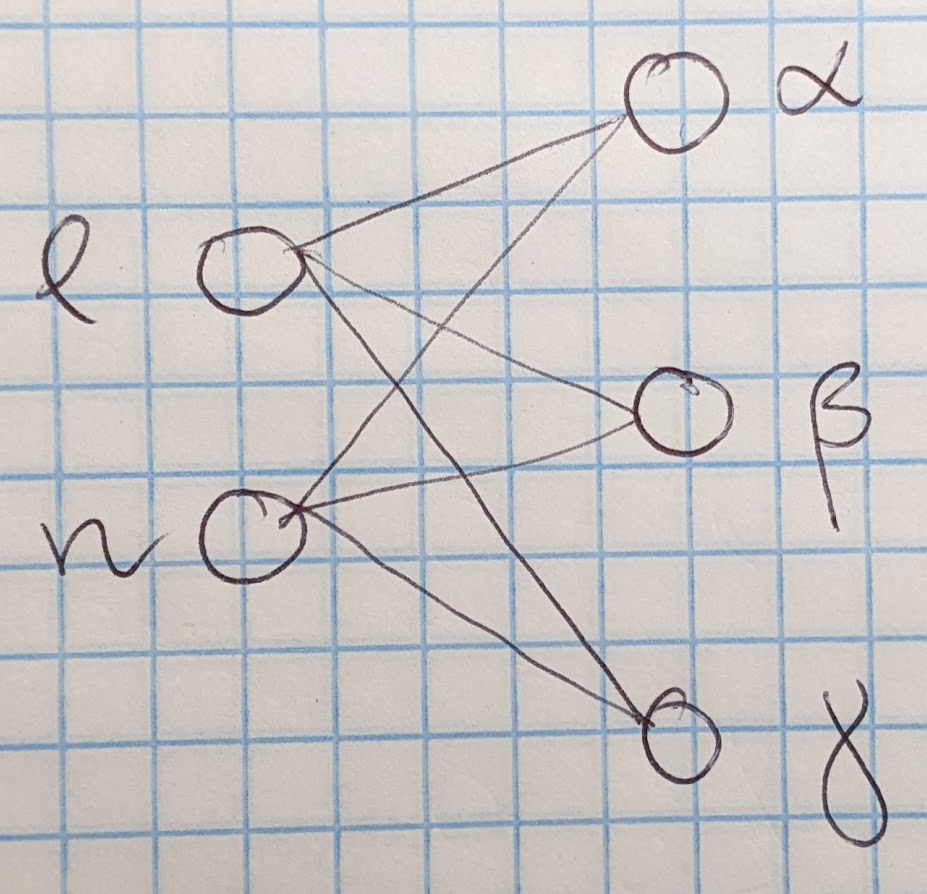 α
ℓ
β
n
γ